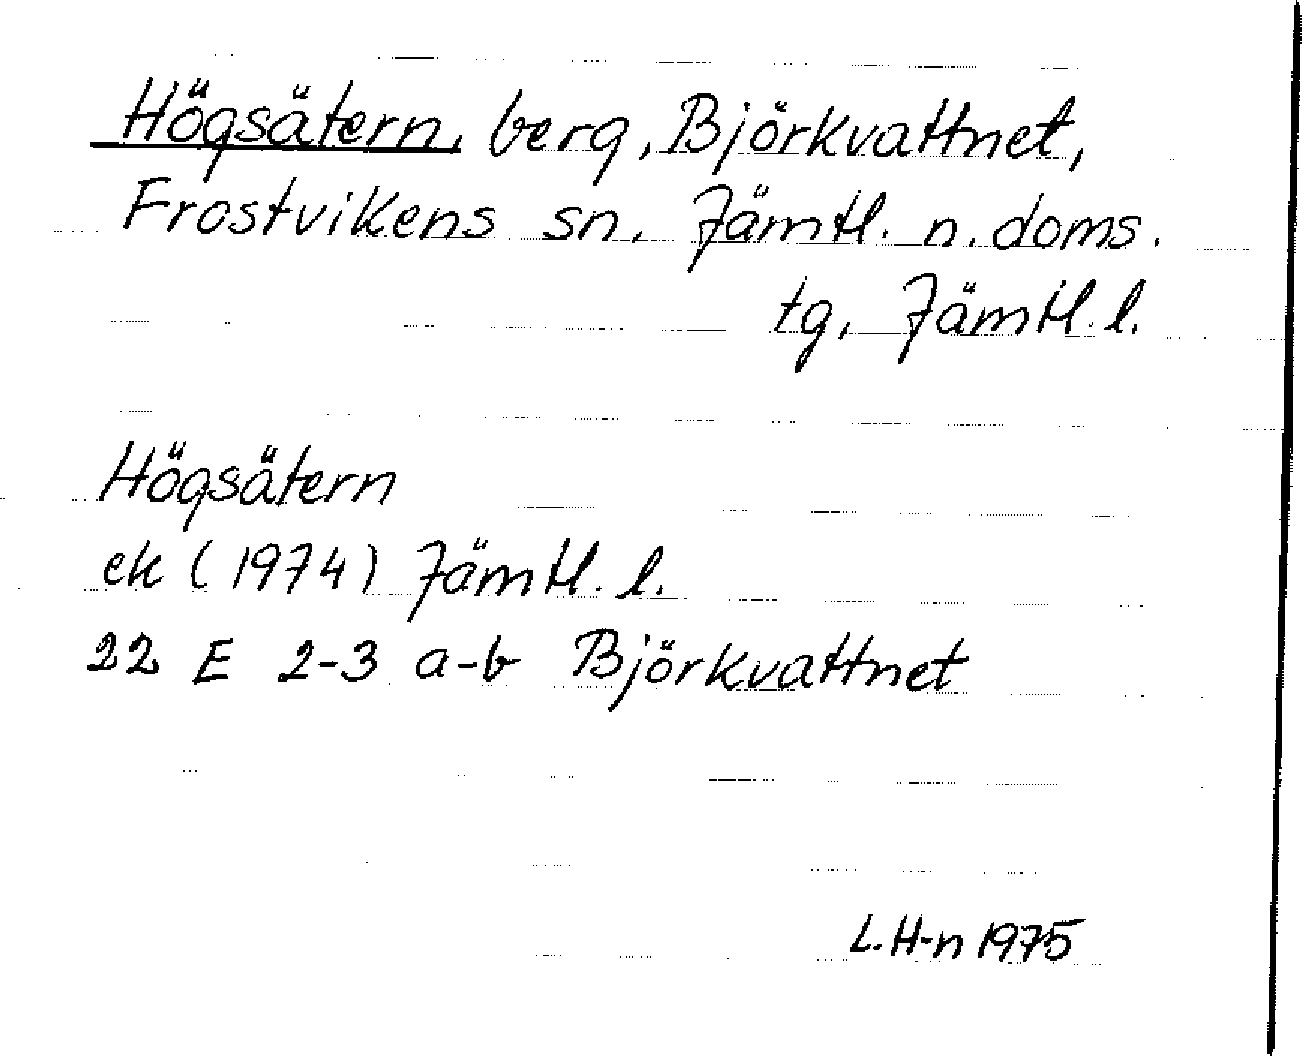 Högsätern, berg, Björkvattnet,
Frostvikens sn, Jämtl. n. doms.
tg, Jämtl. l.
Högsätern
ek (1974) Jämtl. l.
22 E 2-3 a-b Björkvattnet
L. H-n 1975